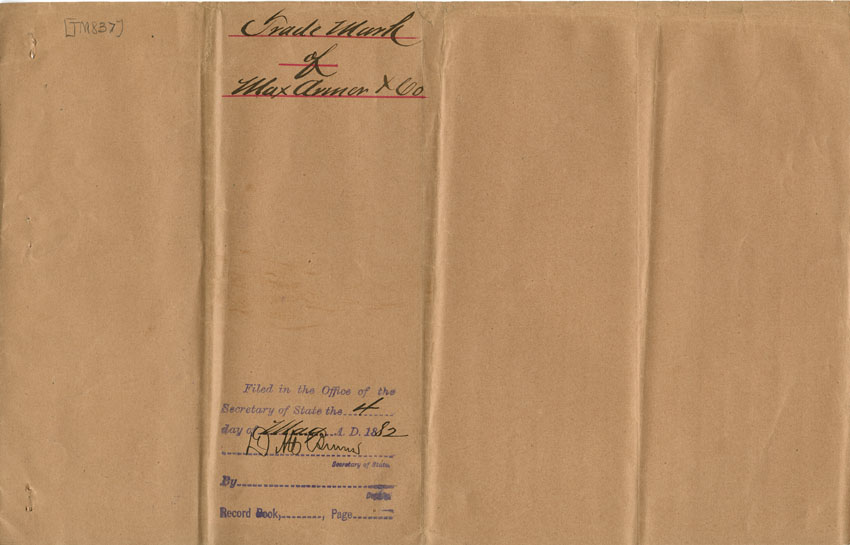 [TM837]
Trade Mark
of
Max Armer & Co
Filed in the Office of the
Secretary of State the 4
day of May A. D. 1882
Secretary of State.
By
Deputy.
Record Book, , Page